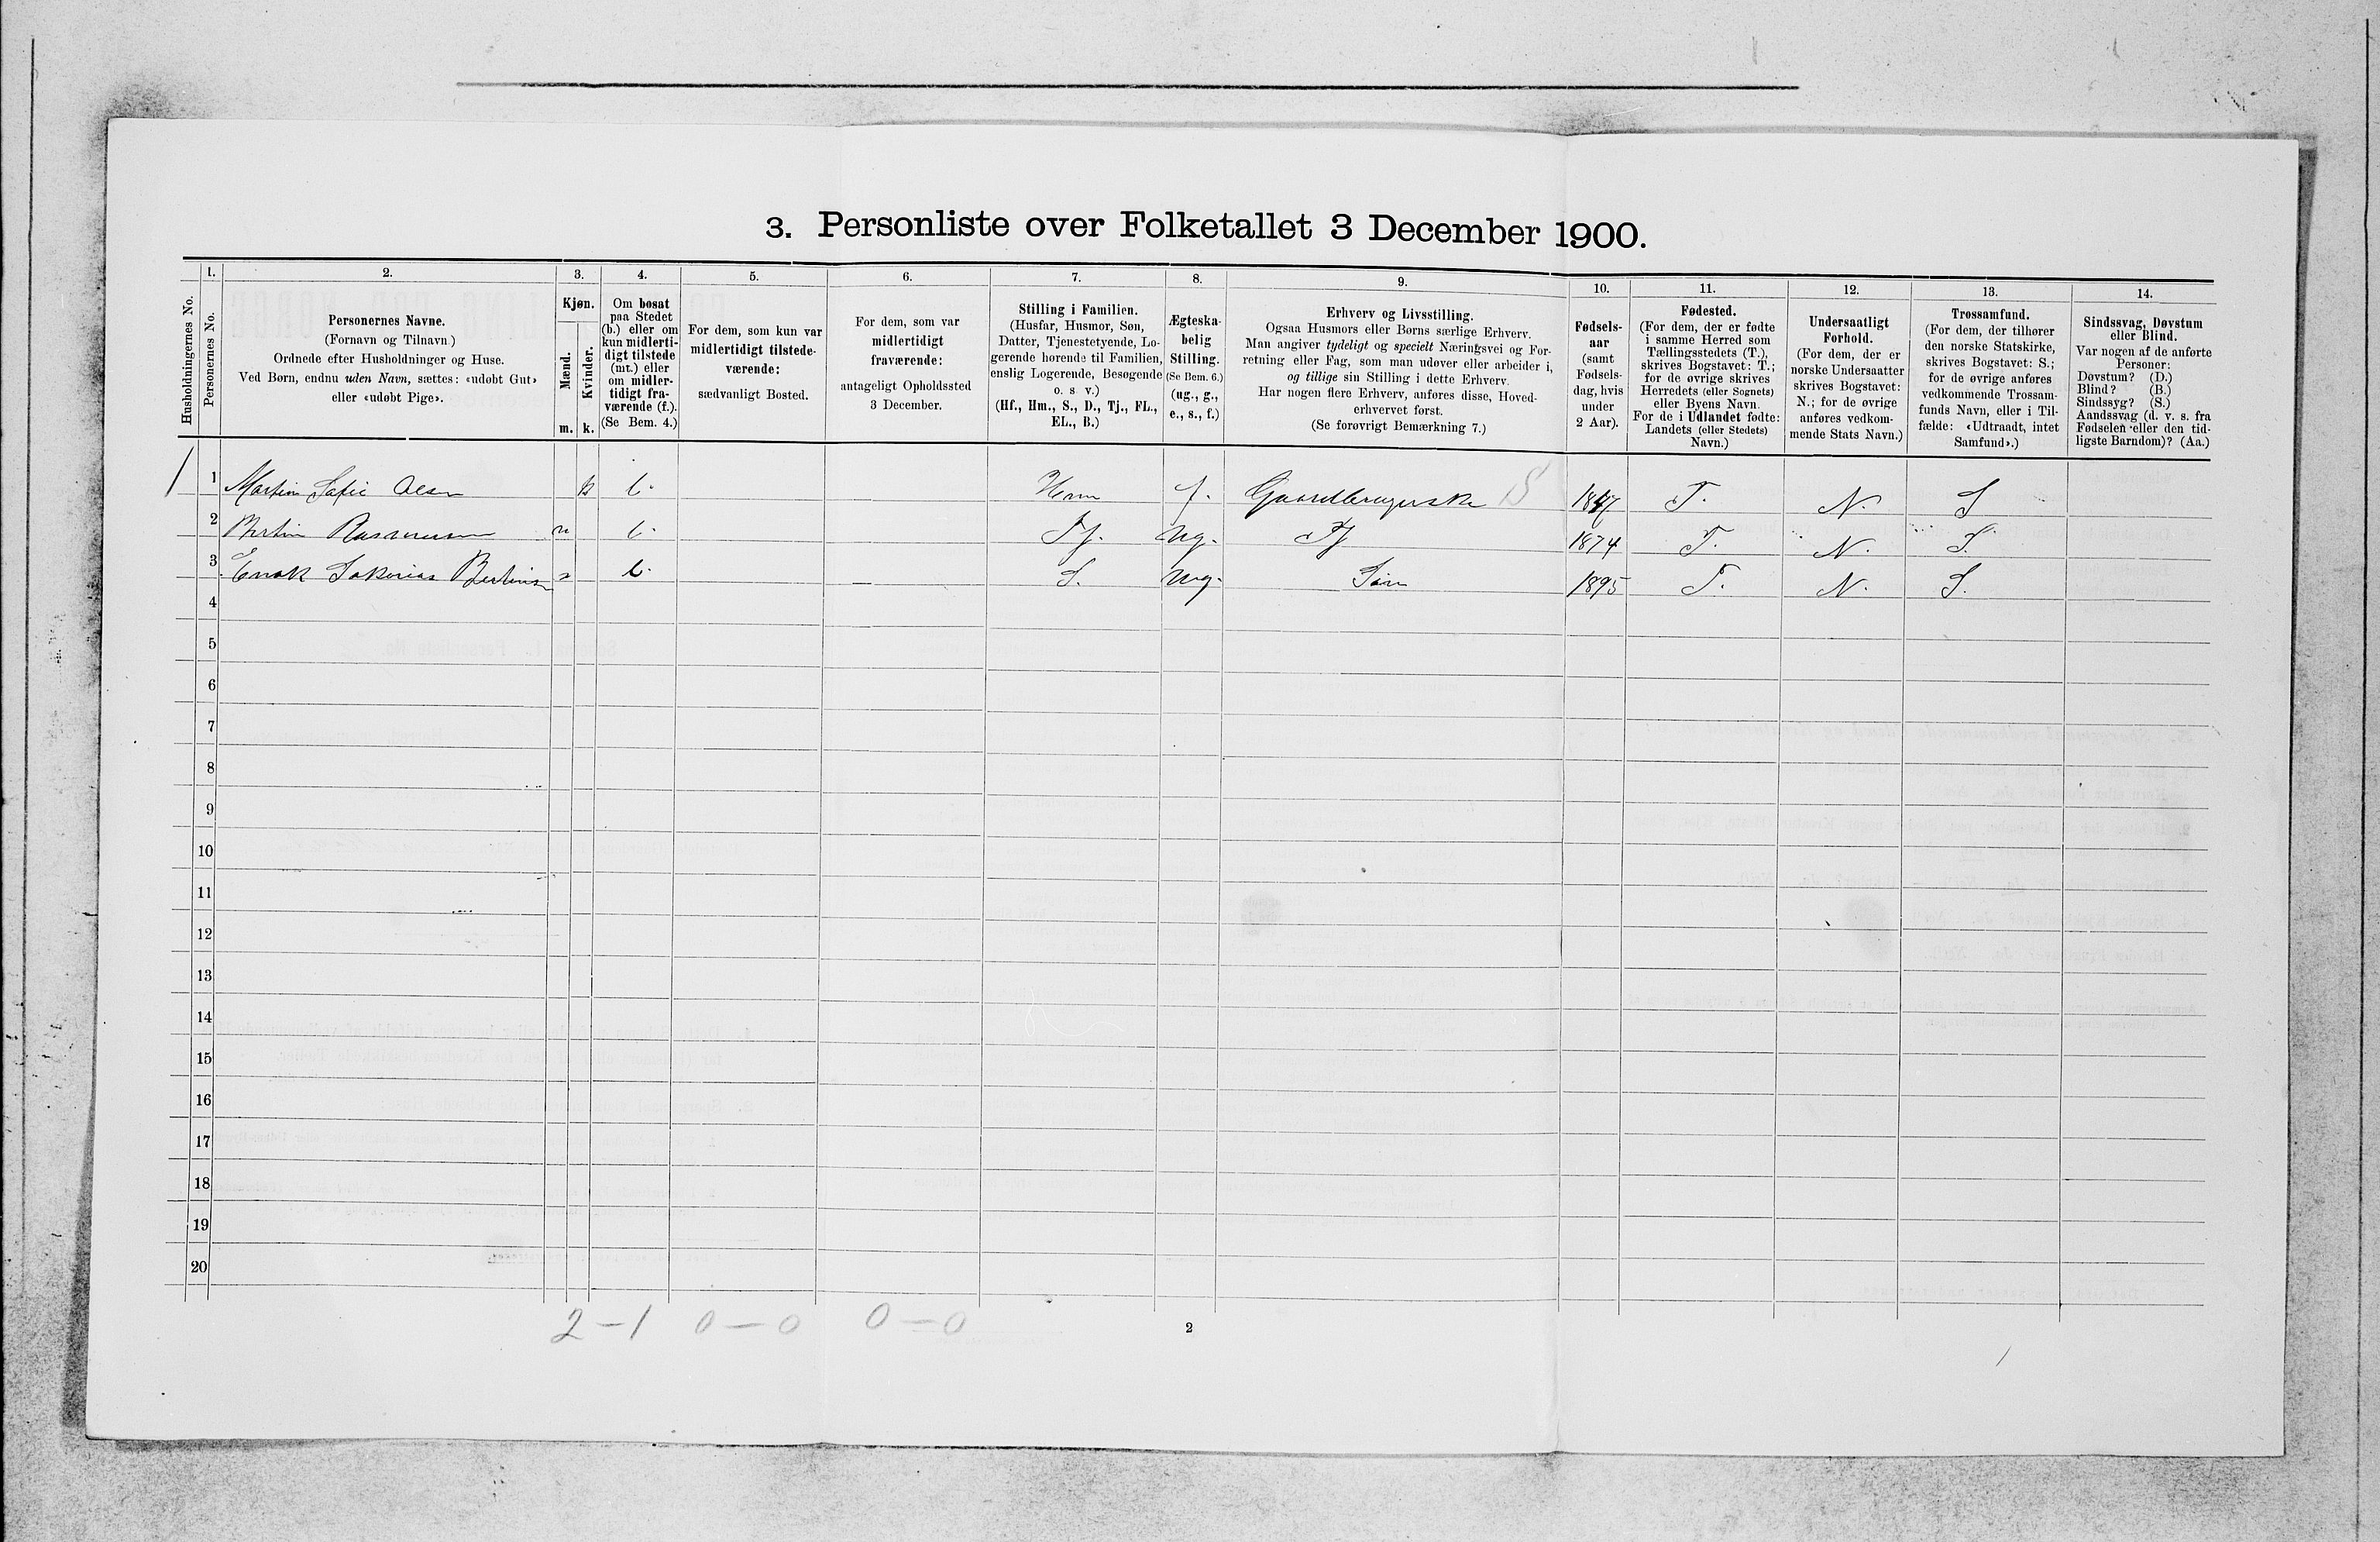 3. Personliste over Folketallet 3 December 1900.
Husholdningernes No.
1.
Personernes No.
2.
Personernes Navne.
(Fornavn og Tilnavn.)
Ordnede efter Husholdninger og Huse.
Ved Børn, endnu uden Navn, sættes: «udøbt Gut»
eller «udøbt Pige».
3.
Kjøn.
Mænd.
Kvinder.
m. k.
4.
Om bosat
paa Stedet
(b.) eller om
kun midlerti-
digt tilstede
(mt.) eller
om midler-
tidigt fra-
værende (f.).
(Se Bem. 4.)
5.
For dem, som kun var
midlertidigt tilstede-
værende:
sædvanligt Bosted.
6.
For dem, som var
midlertidigt
fraværende:
antageligt Opholdssted
3 December.
7.
Stilling i Familien.
(Husfar, Husmor, Søn,
Datter, Tjenestetyende, Lo-
gerende hørende til Familien,
enslig Logerende, Besøgende
o. s v.)
(Hf., Hm., S., D., Tj., FL.,
EL., B.)
8.
Ægteska-
belig
Stilling.
(Se Bem. 6.)
(ug., g.,
e., s., f.)
9.
Erhverv og Livsstilling.
Ogsaa Husmors eller Børns særlige Erhverv.
Man angiver tydeligt og specielt Næringsvei og For-
retning eller Fag, som man udøver eller arbeider i,
og tillige sin Stilling i dette Erhverv.
Har nogen flere Erhverv, anføres disse, Hoved-
erhvervet først.
(Se forøvrigt Bemærkning 7.)
10.
Fødsels-
aar
(samt
Fødsels-
dag, hvis
under
2 Aar).
11.
Fødested.
(For dem, der er fødte
i samme Herred som
Tællingsstedets (T.),
skrives Bogstavet: T.;
for de øvrige skrives
Herredets (eller Sognets)
eller Byens Navn.
For de i Udlandet fødte:
Landets (eller Stedets)
Navn.)
12.
Undersaatligt
Forhold.
(For dem, der er
norske Undersaatter
skrives Bogstavet:
N.; for de øvrige
anføres vedkom-
mende Stats Navn.)
13.
Trossamfund.
(For dem, der tilhører
den norske Statskirke,
skrives Bogstavet: S.;
for de øvrige anføres
vedkommende Trossam-
funds Navn, eller i Til-
fælde: «Udtraadt, intet
Samfund».)
14.
Sindssvag, Døvstum
eller Blind.
Var nogen af de anførte
Personer:
Døvstum? (D.)
Blind? (B.)
Sindssyg? (S.)
Aandssvag (d. v. s. fra
Fødselen eller den tid-
ligste Barndom)? (Aa.)
1 1 Martin Safie Olsn k b. Hm f. Gaardbrugerske 1847 T. N. S
2 Rasmussen m b. Tj. ug. Tj 1874 T. N. S.
3 Enok Sakarias m b. S. ug. Søn 1895 T. N. S.
4
5
6
7
8
9
10
11
12
13
14
15
16
17
18
19
20
2 - 1 0 - 0 0 - 0
2